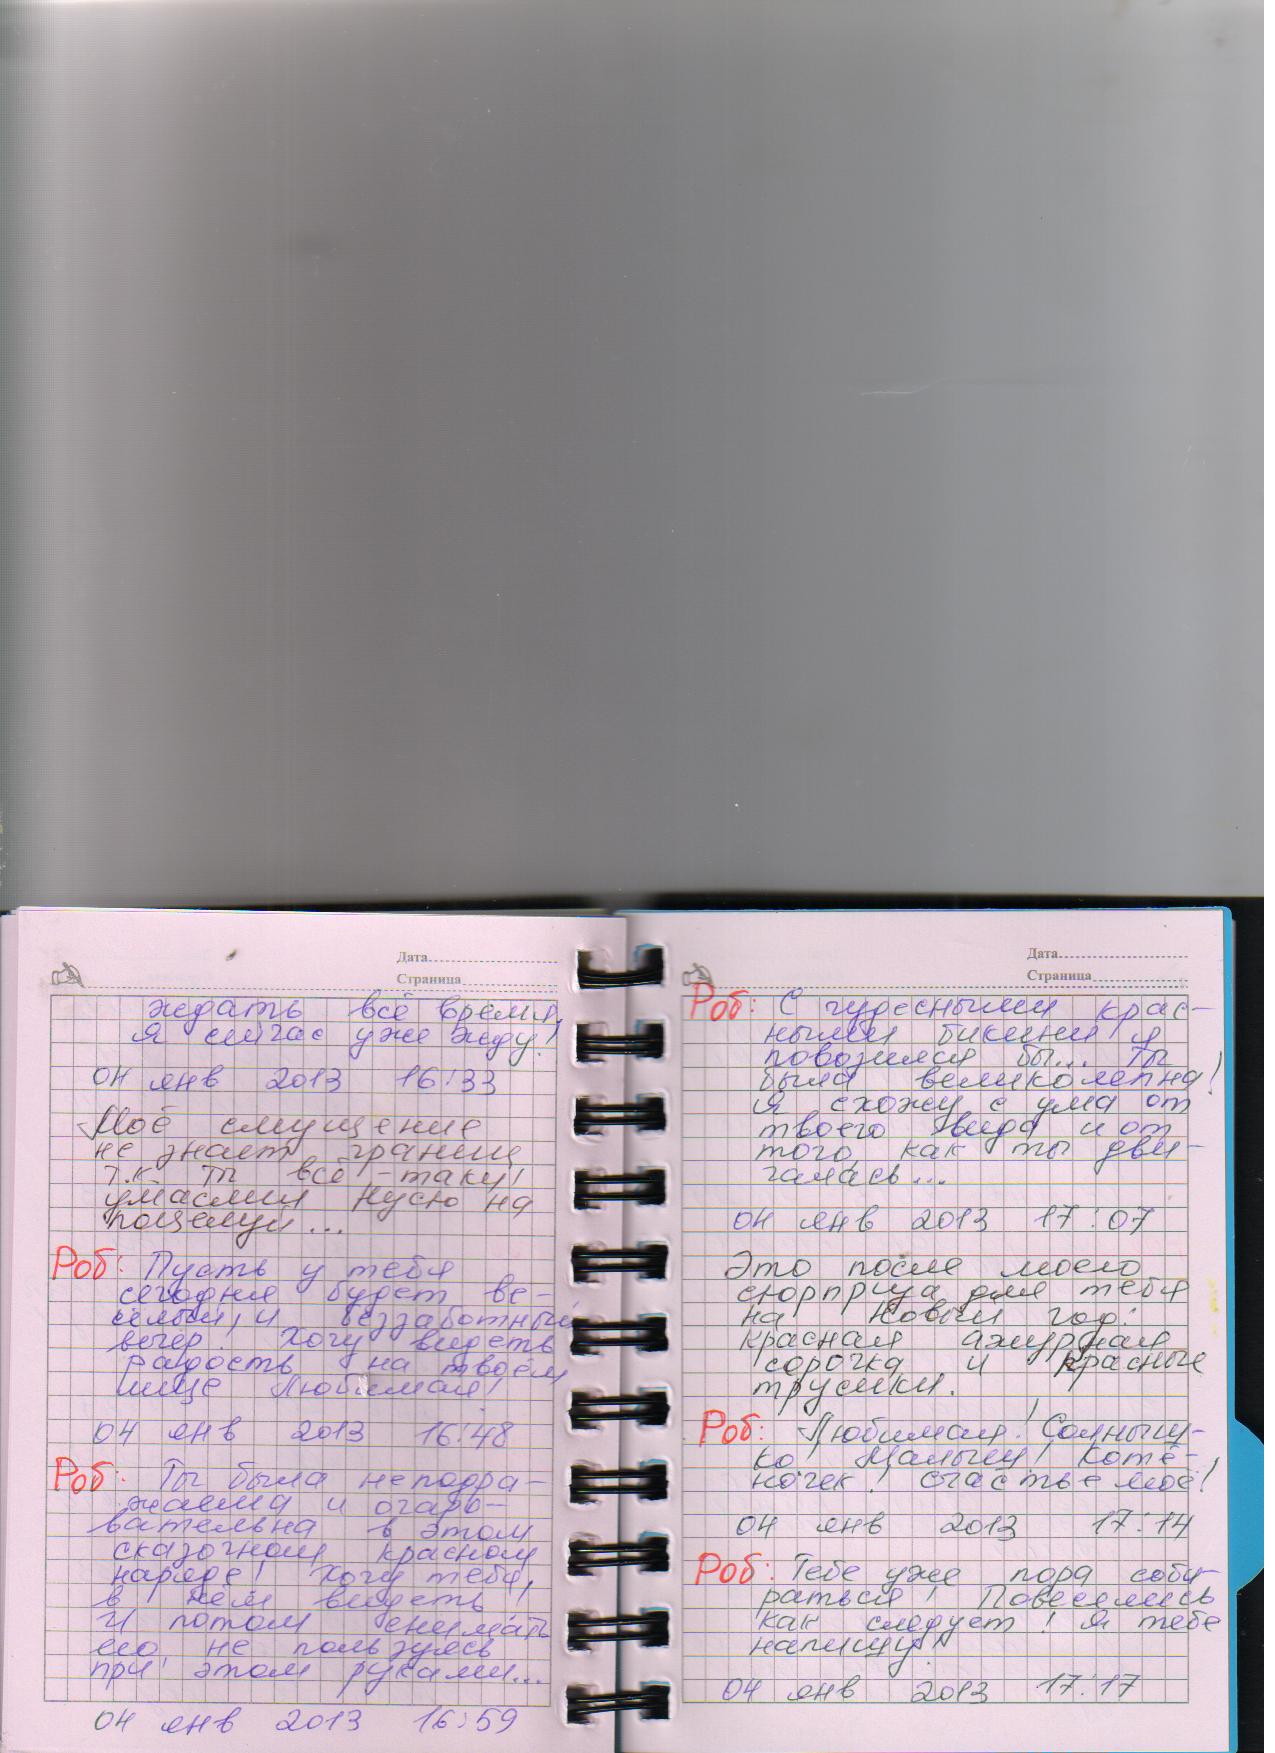 Дата
Страница
ждать всё время,
я сейчас уже жду!
04 янв 2013 16:33
Моё смущение
не знает границ
т.к. ты всё-таки
умаслил Кусю на
поцелуй...
Роб: Пусть у тебя
сегодня будет ве-
сёлый, и беззаботный
вечер. Хочу видеть
радость на твоём
лице Любимая!
04 янв 2013 16:48
Роб: Ты была неподра-
жаема и очаро-
вательна в этом
сказочном красном
наряде! Хочу тебя,
в нём видеть!
И потом снимать
его, не пользуясь
при этом руками...
04 янв 2013 16:59
Дата
Страница
Роб: С чудесными крас-
ными бикини я
повозился бы... Ты
была великолепна!
Я схожу с ума от
твоего вида и от
того, как ты дви-
галась...
04 янв 2013 17:07
Это после моего
сюрприза для тебя
на Новый год:
красная ажурная
сорочка и красные
трусики.
Роб: Любимая! Солныш-
ко! Малыш! Котё-
ночек! Счастье моё!
04 янв 2013 17:14
Роб: Тебе уже пора соби-
раться! Повеселись
как следует! Я тебе
напишу!
04 янв 2013 17:17